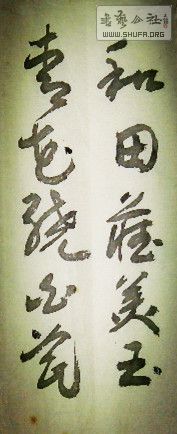 书艺公社
WWW.SHUFA.ORG
和田蕴美玉
青花绕白瓷